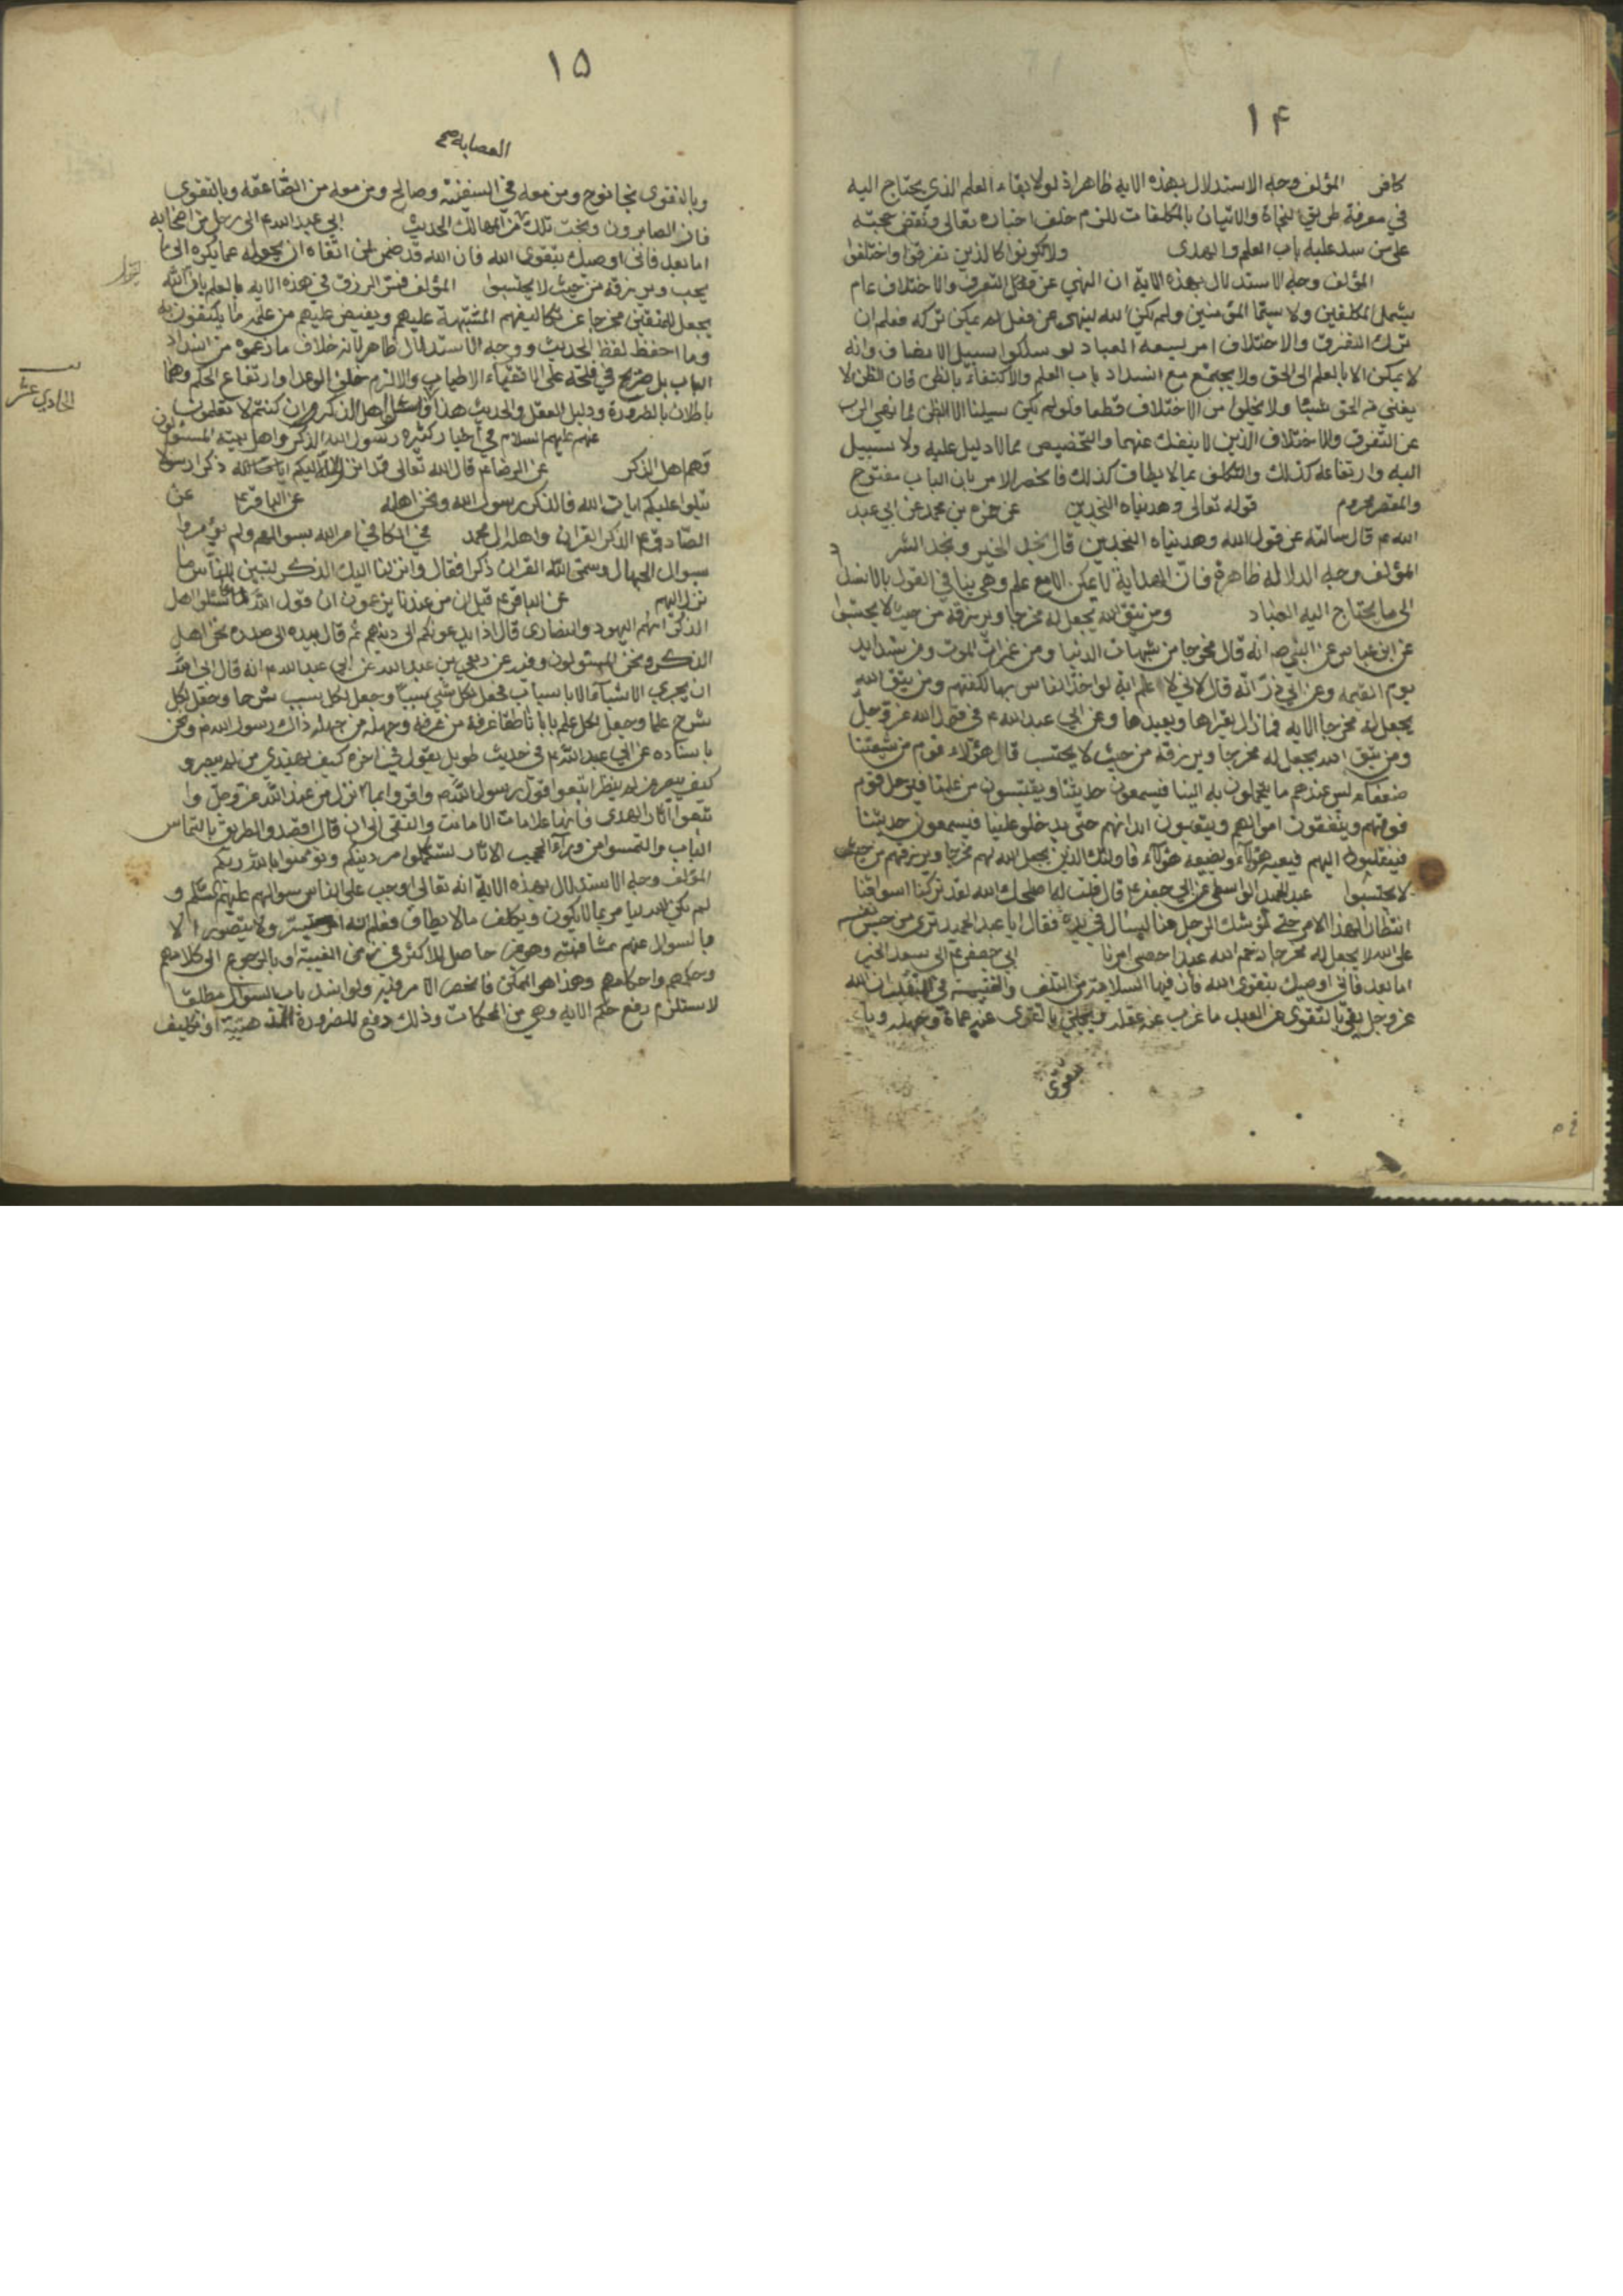 ١۴
كافر المؤلف وجه الاستدلال بهذه الاية ظاهر اذ لولا بقاء العلم الذى يحتاج اليه
في معرفة طريق النجاة والاتيان بالمكلفات للزم خلف اخباره تعالى وتقض حجته
على من سد عليه باب العلم والهدى ولا تكونوا كالذين تفرقوا واختلفوا
المؤلف وجه الاستدلال بهذه الاية ان النهي عن التفرق والاختلاف عام
يشمل المكلفين ولا سيما المؤمنين ولم يكن الله لينهى عن فعل لم يمكن تركه فعلم ان
ترك التفرق والاختلاف امر يسعه العباد لو سلكوا سبيل الانصاف وانه
لا يمكن الا بالعلم الى الحق ولا يجتمع مع انسداد باب العلم والاكتفاء بالظن فان الظن لا
يغني من الحق شيئا ولا يخلوا من الاختلاف قطعا فلو لم يكن سبيلنا الا الظن لما نهى الرب
عن التفرق والاختلاف الذين لا ينفك عنهما والتخصيص مما لا دليل عليه ولا سبيل
اليه وارتفاعه كذلك والتكلف بما لا يطاق كذلك فانحصر الامر بان الباب مفتوح
والمقصر محروم قوله تعالى وهديناه النجدين عن حمزة بن محمد عن ابي عبد
الله ع قال سالته عن قول الله وهديناه النجدين قال نجد الخير ونجد الشر
المؤلف وجه الدلالة ظاهرة فان الهداية لا يمكن الا مع علم وهي ينافي القول بالانسداد
الى ما يحتاج اليه العباد ومن يتق الله يجعل له مخرجا ويرزقه من حيث لا يحتسب
عن ابن عباس عن النبي صم انه قال مخرجا من شبهات الدنيا ومن غمرات الموت ومن شدايد
يوم القيمة وعن ابي ذر انه قال اني لا علم اية لو اخذ الناس بها لكفتهم ومن يتق الله
يجعل له مخرجا الاية فما زال يقراها ويعيدها وعن ابي عبد الله ع في قول الله عز وجل
ومن يتق الله يجعل له مخرجا ويرزقه من حيث لا يحتسب قال هؤلاء قوم من شيعتنا
ضعفاء ليس عندهم ما يتحملون به الينا فيسمعون حديثنا ويقتبسون من علمنا فيرحل قوم
فوقهم وينفقون اموالهم ويتعبون ابدانهم حتى يدخلو علينا فيسمعون حديثنا
فينقلبون اليهم فيعيه هؤلاء ويضيعه هؤلاء فاولئك الذين يجعل الله لهم مخرجا ويرزقهم من حيث
لا يحتسبوا عبد الحميد الواسطى عن ابي جعفر ع قال قلت له اصلحك الله لقد تركنا اسواقنا
انتظارا لهذا الامر حتى ليوشك الرجل منا ليسال في يده فقال يا عبد الحميد ترى من حبس نفسه
على الله لا يجعل له مخرجا رحم الله عبدا احصى امرنا ابي جعفر ع الى سعد الخير
اما بعد فاني اوصيك بتقوى الله فان فيها السلامة من التلف والغنيمة في المنقلب ان الله
عز وجل يقي بالتقوى عن العبد ما غرب عنه عقله ويجلي بالتقوى عنه عماه وجهله وبا
لتقوى
١۵
العصابة
وبالتقوى نجا نوح ومن معه في السفينة وصالح ومن معه من الصاعقة وبالتقوى
فاز الصابرون ونجت تلك من المهالك الحديث ابي عبد الله ع الى رجل من اصحابه
اما بعد فاني اوصيك بتقوى الله فان الله قد ضمن لمن اتقاه ان يحوله عما يكره الى ما
يحب ويرزقه من حيث لا يحتسبوا المؤلف فسر الرزق في هذه الاية بالعلم بان الله
يجعل للمتقين مخرجا عن تكاليفهم المشتبهة عليهم ويفيض عليهم من علمه ما يكتفون به
وما احفظ لفظ الحديث ووجه الاستدلال ظاهر لانه خلاف ما زعموه من انسداد
الباب بل صريح في فتحه على الاتقياء الاطياب والا لزم خلف الوعد او ارتفاع الحكم وهما
باطلان بالضرورة ودليل العقل والحديث هذا فاسئلوا اهل الذكر ان كنتم لا تعلمون
الحادي عشر
عنهم عليهم السلام في اخبار كثيرة رسول الله الذكر واهل بيته المسئولون
وهم اهل الذكر عن الرضا ع قال الله تعالى قد انزل الله اليكم ذكرا رسولا
يتلوا عليكم ايات الله فالذكر رسول الله ونحن اهله عن الباقر ع عن
الصادق ع الذكر القران واهله ال محمد في الكافي امر الله بسوالهم ولم يؤمروا
بسوال الجهال وسمى الله القران ذكرا فقال وانزلنا اليك الذكر لتبين للناس ما
نزل اليهم عن الباقر ع قيل ان من عندنا يزعمون ان قول الله فاسئلوا اهل
الذكر انهم اليهود والنصارى قال اذا يدعونكم الى دينهم ثم قال بيده الى صدره نحن اهل
الذكر ونحن المسئولون وفيه عن ربعي بن عبد الله عن ابي عبد الله ع انه قال ابى الله
ان يجري الاشياء الا باسباب فجعل لكل شي سببا وجعل لكل سبب شرحا وجعل لكل
شرح علما وجعل لكل علم بابا ناطقا عرفه من عرفه وجهله من جهله ذاك رسول الله ص ونحن
باسناده عن ابي عبد الله ع في حديث طويل يقول في اخره كيف يهتدي من لم يبصر و
كيف يبصر من لم ينظر اتبعوا قول رسول الله ص واقروا بما نزل من عند الله عز وجل وا
تبعوا اثار الهدى فانها علامات الامانت والتقى الى ان قال اقصدوا الطريق بالتماس
الباب والتمسوا من وراء الحجب الاثار تستكملوا امر دينكم وتؤمنوا بالله ربكم
المؤلف وجه الاستدلال بهذه الاية انه تعالى اوجب على الناس سوالهم عليهم السلام و
لم يكن الله ليامر بما لا يكون ويكلف مالا يطاق فعلم انه امر ميسر ولا يتصور الا
بالسوال عنهم مشافهة وهو غير حاصل للاكثر في زمن الغيبة او بالرجوع الى كلامهم
وحكمهم واحكامهم وهذا هو الممكن فانحصر الامر فيه ولو انسد باب السوال مطلقا
لاستلزم رفع حكم الاية وهي من المحكمات وذلك رفع للضرورة المذهبية او تكليف